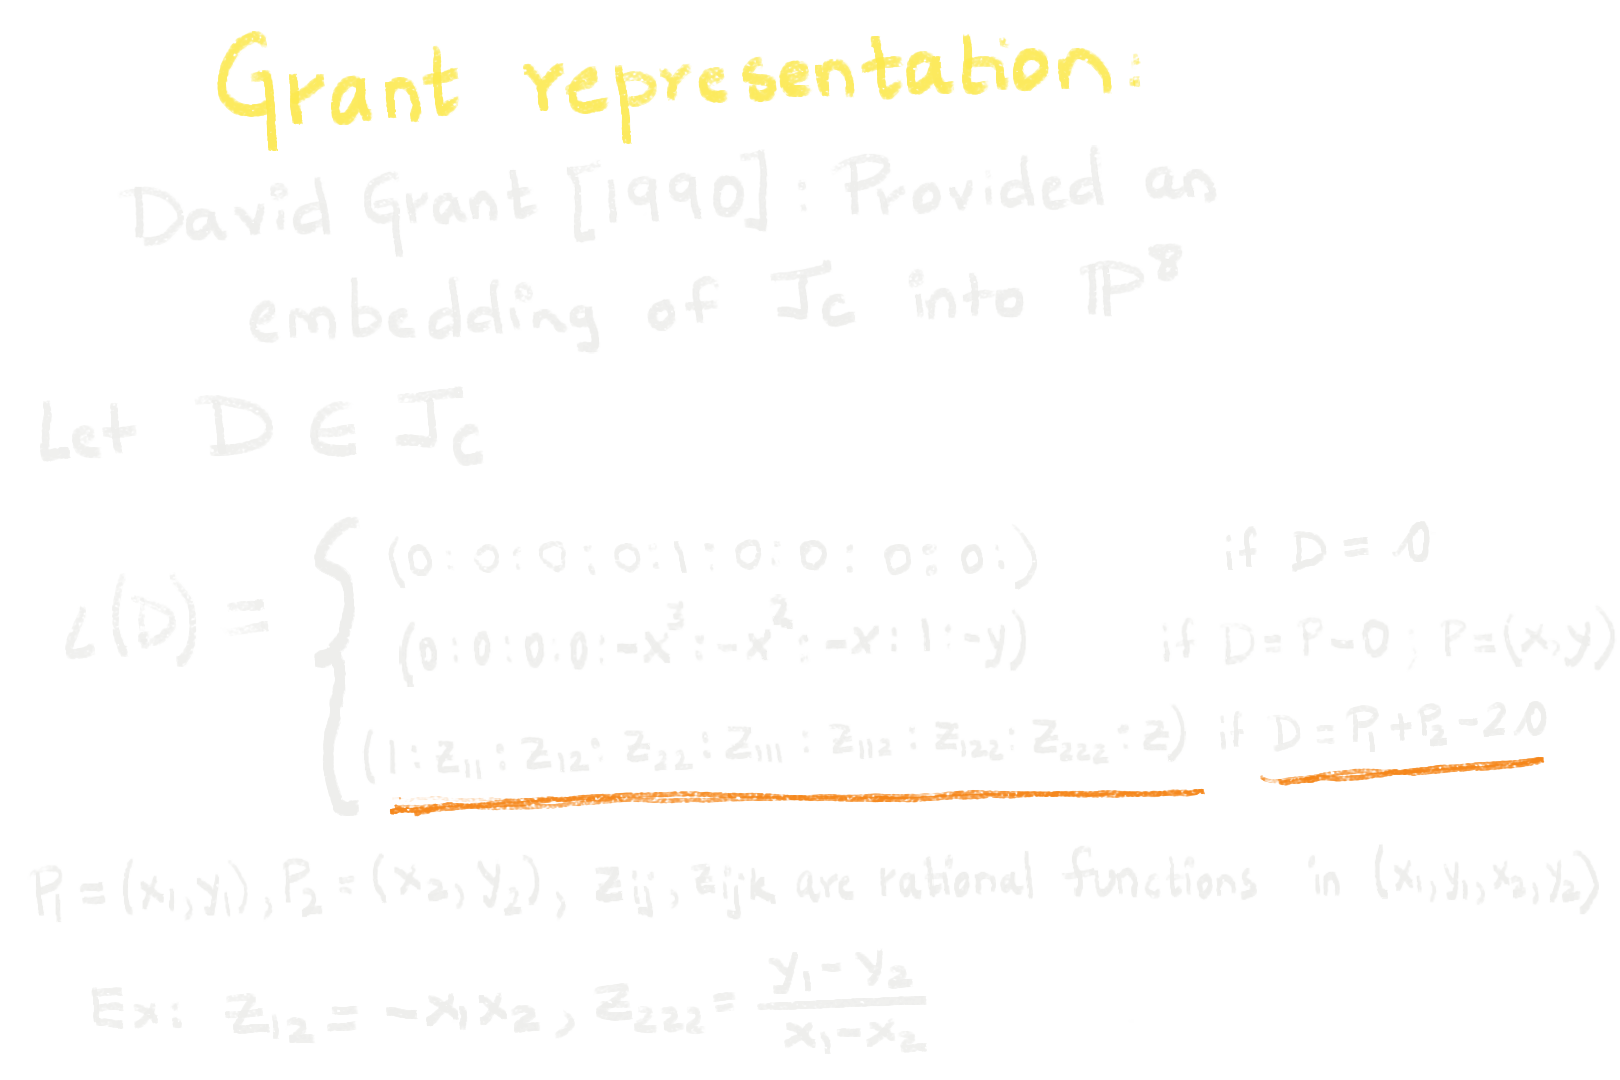 Grant representation:
David Grant [1990]: Provided an
embedding of J_C into ℙ⁸
Let D ∈ J_C
L(D) = {
(0:0:0:0:1:0:0:0:0:) if D = 0
(0:0:0:0:-x³:-x²:-x:1:-y) if D = P-0; P=(x,y)
(1:z₁₁:z₁₂:z₂₂:z₁₁₁:z₁₁₂:z₁₂₂:z₂₂₂:z) if D = P₁+P₂-2.0
P₁=(x₁,y₁), P₂=(x₂,y₂), zij, zijk are rational functions in (x₁,y₁,x₂,y₂)
Ex: z₁₂ = -x₁x₂, z₂₂₂ = (y₁-y₂)/(x₁-x₂)